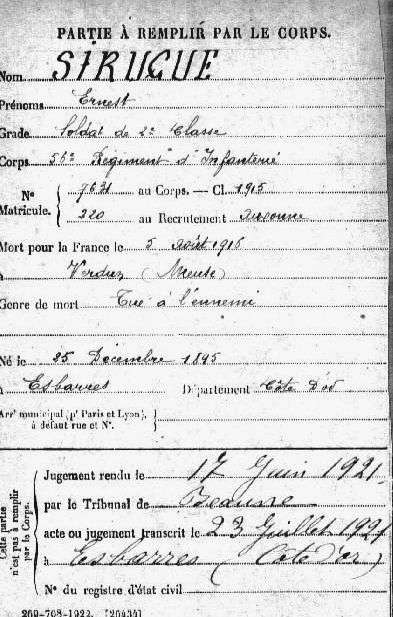 PARTIE À REMPLIR PAR LE CORPS.
Nom STRUGUE
Prénoms Ernest
Grade Soldat de 2e Classe
Corps 56e Régiment d'Infanterie
No Matricule. 7631 au Corps. — Cl. 1915
220 au Recrutement Auxonne
Mort pour la France le 5 Août 1916
à Verdun (Meuse)
Genre de mort Tué à l'ennemi
Né le 25 Décembre 1895
à Esbarres Département Côte D'or
Arrt municipal (pr Paris et Lyon),
à défaut rue et No.
Cette partie
n'est pas à remplir
par le Corps.
Jugement rendu le 17 Juin 1921
par le Tribunal de Beaune
acte ou jugement transcrit le 23 Juillet 1921
à Esbarres (Côte d'or)
No du registre d'état civil
269-708-1922. [26434]